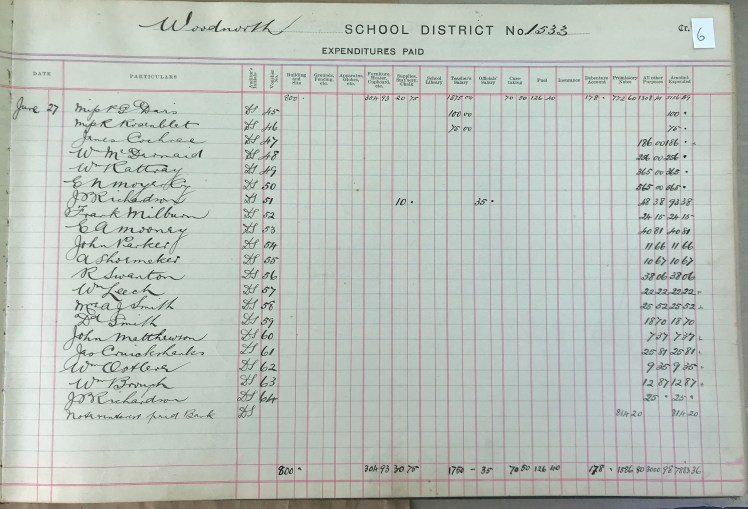 Woodnorth SCHOOL DISTRICT No. 1533 Cr. 6
EXPENDITURES PAID
DATE PARTICULARS Auditor's Initials Voucher No. Building and Site Grounds, Fencing, etc. Apparatus, Globes, etc. Furniture, Heater, Cupboard, etc. Supplies, Stat'nery, Chalk School Library Teacher's Salary Officials' Salary Care-taking Fuel Insurance Debenture Account Promissory Notes All other Purposes Amount Expended
800 304 93 20 75 1575 00 70 50 126 40 178 772 60
June 27 Miss P G Davis DS 45 100 00 100
Miss R Rosenblat DS 46 75 00 75
James Cochrae DS 47 186 00 186
Wm McDermaid DS 48 256 00 256
Wm Rattray DS 49 365 00 365
E N Moyer Co DS 50 565 00 565
J P Richardson DS 51 10 35 58 38 93 38
Frank Milburn DS 52 24 15 24 15
E A Mooney DS 53 40 81 40 81
John Parker DS 54 11 66 11 66
A Shormaker DS 55 10 67 10 67
R Swanton DS 56 38 06 38 06
Wm Leech DS 57 22 22 22 22
Mrs A J Smith DS 58 25 52 25 52
D Smith DS 59 18 70 18 70
John Matthewson DS 60 7 37 7 37
Jas DS 61 25 81 25 81
Wm Ostler DS 62 9 35 9 35
Wm Brough DS 63 12 87 12 87
J P Richardson DS 64 25 25
Note interest paid Bank DS 814 20 814 20
800 304 93 30 75 1750 35 70 50 126 40 178 1586 80